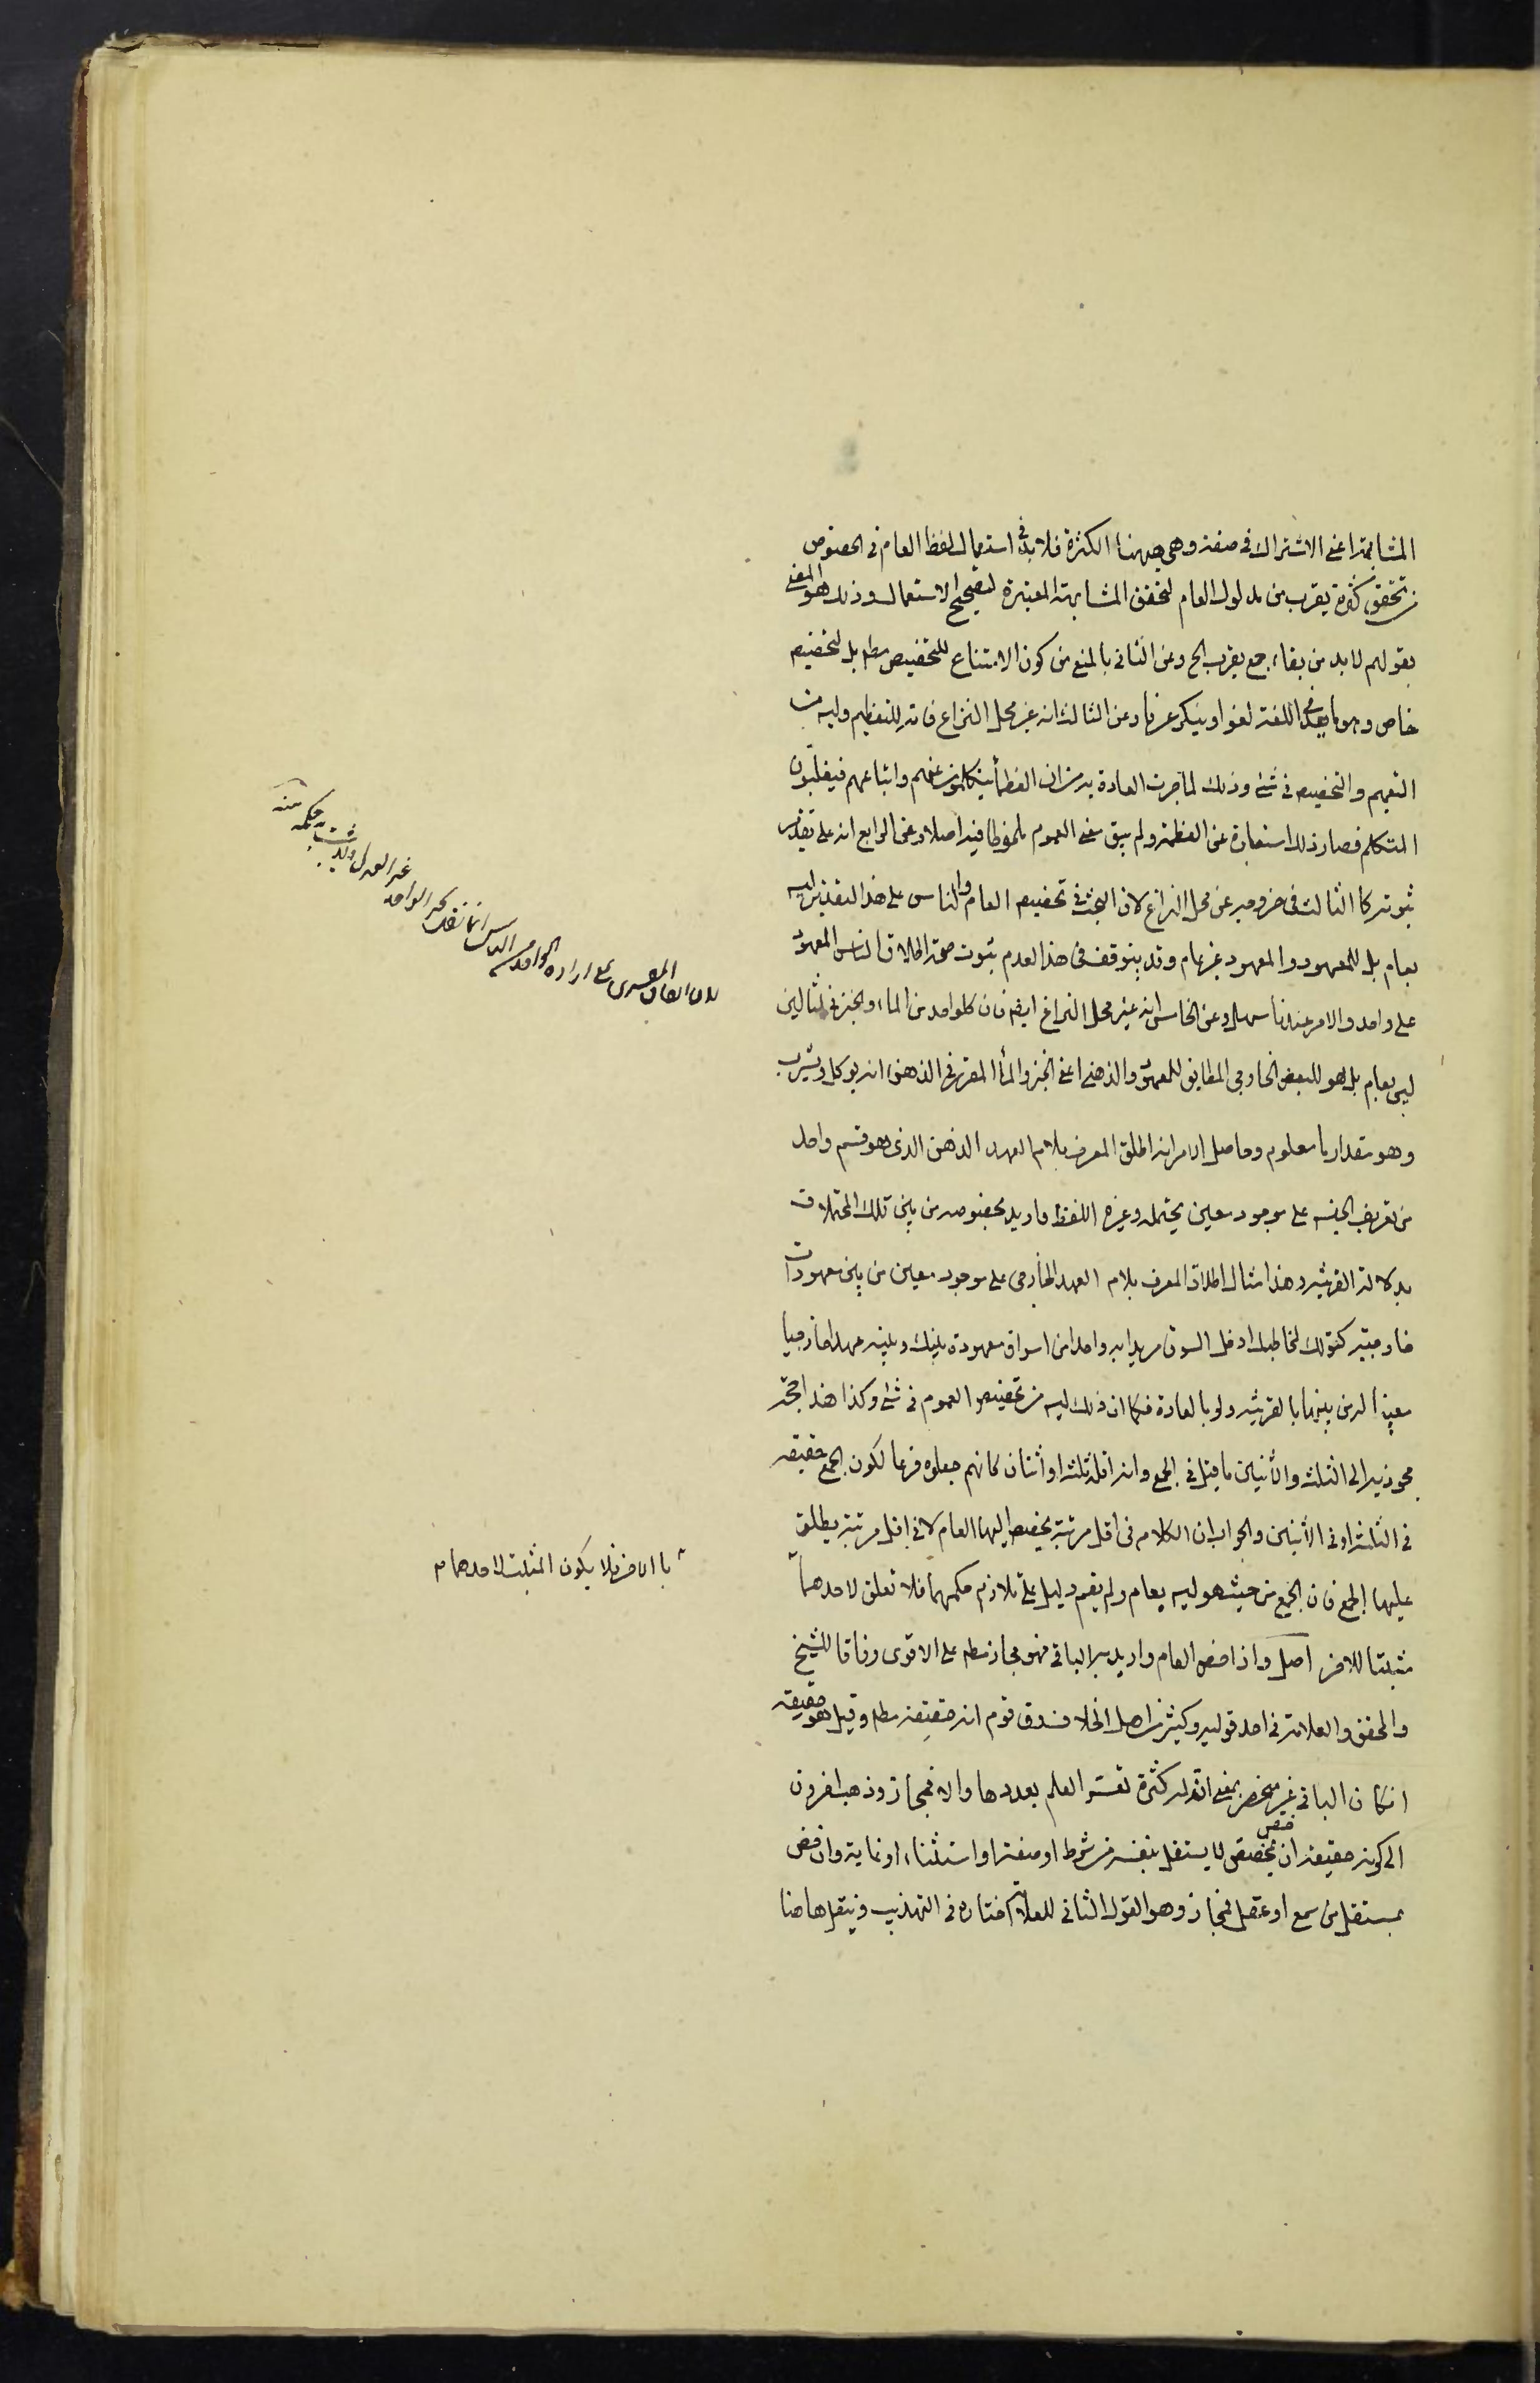 المشابهة اعنى الاشتراك فى صفة وهى ههنا الكثرة فلا بد فى استعمال لفظ العام فى الخصوص
من تحقق كثرة يقرب من مدلول العام لتحقق المشابهة المعتبرة لتصحيح الاستعمال وذلك هو المعنى
بقولهم لا بد من بقاء جمع يقرب الخ وعن الثانى بالمنع من كون الامتناع للتخصيص مطم بل لتخصيص
خاص وهو ما يعد فى اللغة لغوا وينكر عرفا وعن الثالث انه غير محل النزاع فانه للتعظيم وليس من
التعميم والتخصيص فى شئ وذلك لما جرت العادة به من ان العظماء يتكلمون عنهم واتباعهم فيغلبون
المتكلم فصار ذلك استعارة عن العظمة ولم يبق معنى العموم ملحوظا فيه اصلا وعن الرابع انه على تقدير
ثبوته كالثالث فى خروجه عن محل النزاع لان البحث فى تخصيص العام والناس على هذا التقدير ليس
بعام بل للمعهود والمعهود غير عام وقد يتوقف فى هذا لعدم ثبوت صحة اطلاق الناس المعهود
على واحد والامر عندنا سهل وعن الخامس انه غير محل النزاع ايضا فان كلا واحد من الماء والخبز فى المثالين
ليس بعام بل هو للبعض الخارجى المطابق للمعهود الذهنى اعنى الخبز والماء المقرر فى الذهن انه يوكل ويشرب
وهو مقدار ما معلوم وحاصل الامر انه اطلق المعرف بلام العهد الذهن الذى هو قسم واحد
من تعريف الجنس على موجود معين يحتمله وغيره اللفظ واريد بخصوصه من بين تلك المحتملات
بدلالة القرينة وهذا مثال اطلاق المعرف بلام العهد الخارجى على موجود معين من بين معهودات
خارجية كقولك لمخاطبك ادخل السوق مريدا به واحدا من اسواق معهودة بينك وبينه عهدا خارجيا
معينا له من بينها بالقرينة ولو بالعادة فكما ان ذلك ليس من تخصيص العموم فى شئ وكذا هذا حجة
مجوزيه الى الثلث والاثنين ما قيل فى الجمع وان اقله ثلثة او اثنان كانهم جعلوه فرعا لكون الجمع حقيقة
فى الثلثة او فى الاثنين والجواب ان الكلام فى اقل مرتبة يخصص اليها العام لا فى اقل مرتبة يطلق
عليها الجمع فان الجمع من حيث هو ليس بعام ولم يقم دليل على تلازم حكمهما فلا تعلق لاحدهما
مثبتا للاخر اصل واذا خص العام واريد به الباقى فهو مجاز مطم على الاقوى وفاقا للشيخ
والمحقق والعلامة فى احد قوليه وكثير من اهل الخلاف وق قوم انه حقيقة مطم وقيل هو حقيقة
انكان الباقى غير منحصر بمعنى ان له كثرة تعسر العلم بعددها والا فمجاز وذهب اخرون
الى كونه حقيقة ان خص بمخصص لا يستقل بنفسه من شرط او صفة او استثناء او غاية وان خص
بمستقل من سمع او عقل فمجاز وهو القول الثانى للعلامة اختاره فى التهذيب وينقل هاهنا
بالاخر فلا يكون المثبت لاحدهما